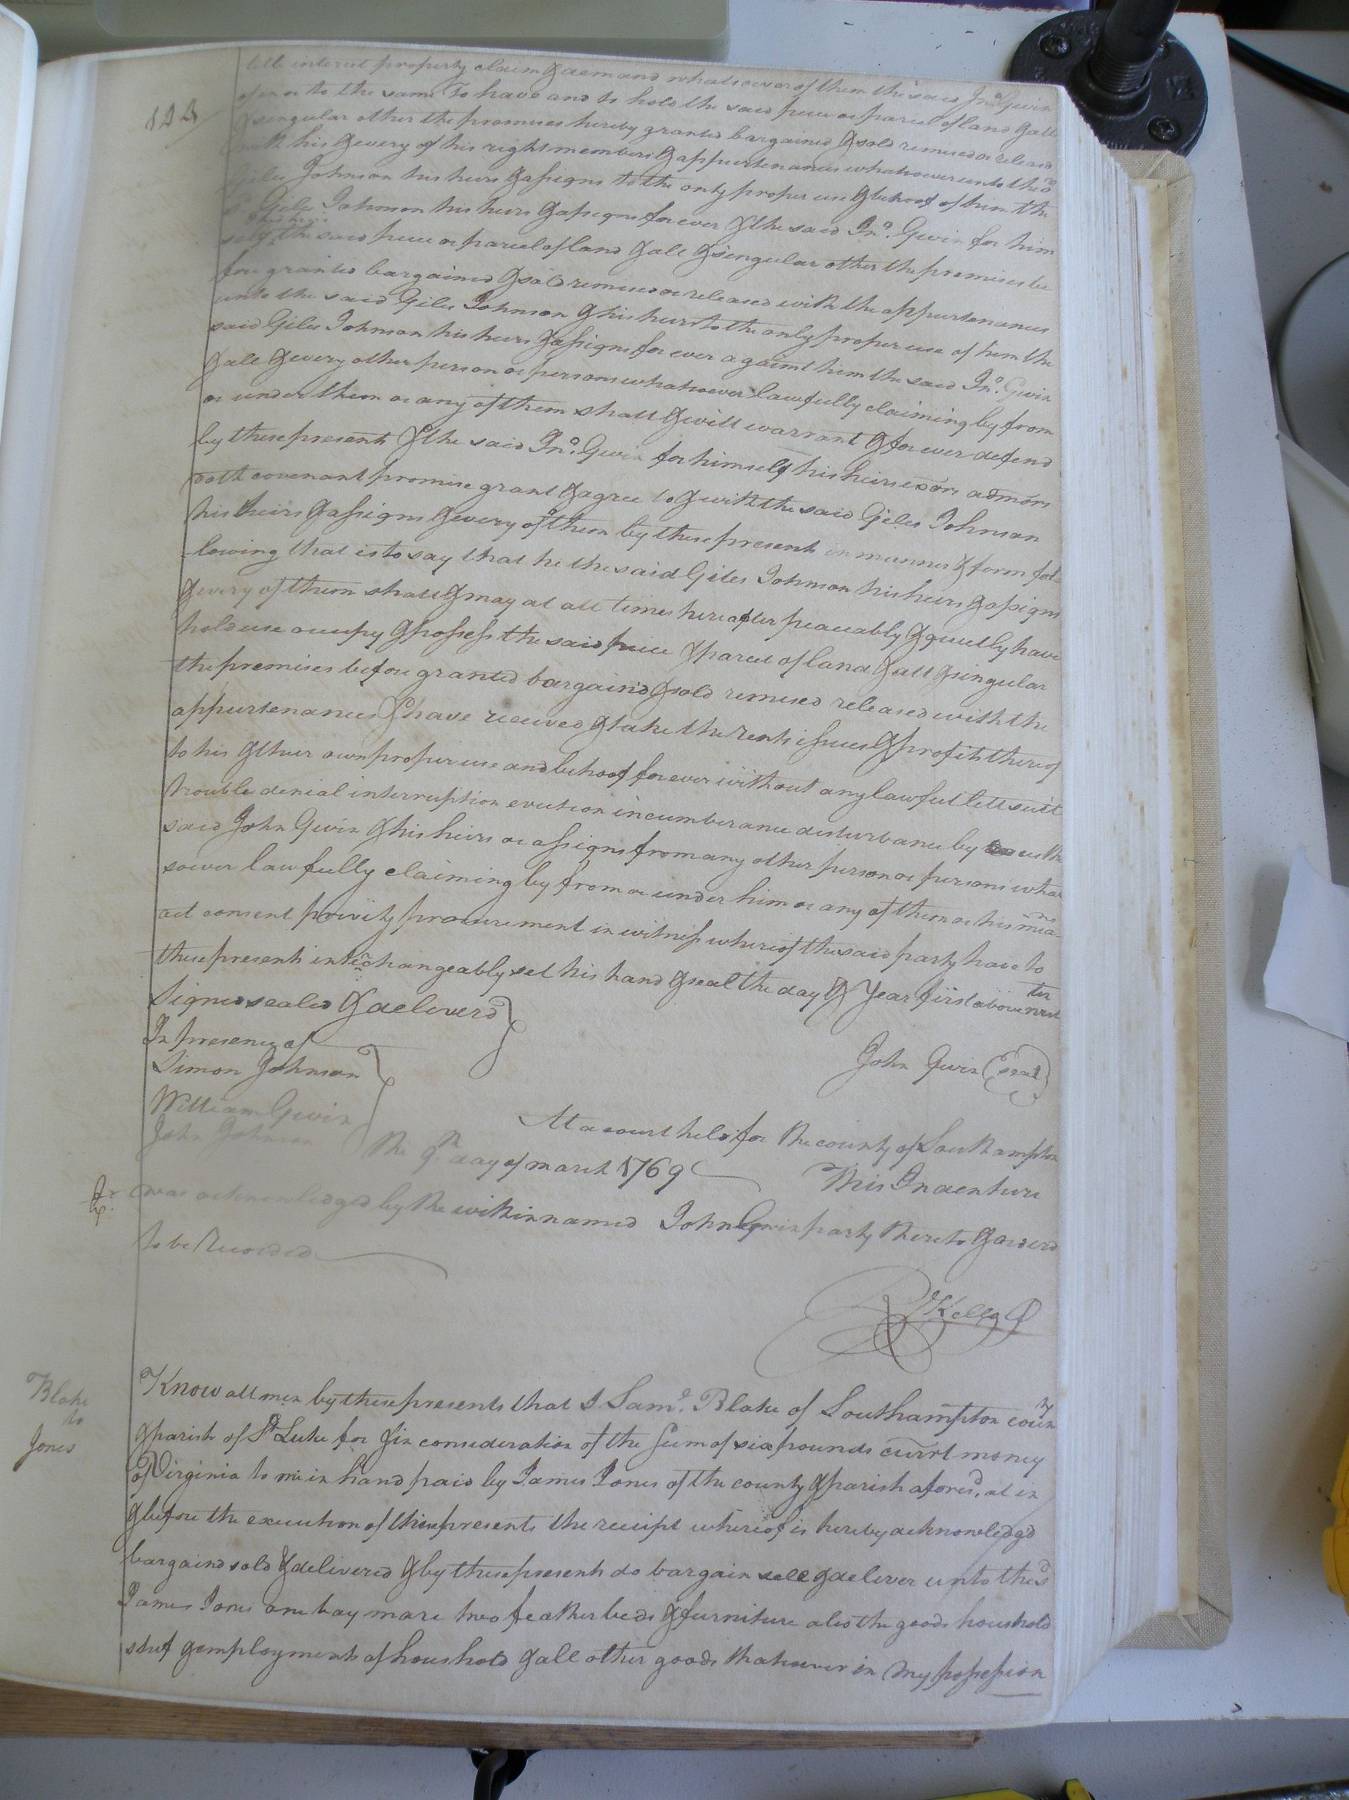 123
title interest property claim & demand whatsoever of them the said Jno. Gwin
of in or to the same to have and to hold the said piece or parcel of land & all
& singular other the premises hereby granted bargained & sold remised or released
with his & every of his rights members & appurtenances whatsoever unto the sd
Giles Johnson his heirs & assigns to the only proper use & behoof of him the
sd. Giles Johnson his heirs & assigns for ever & the said Jno. Gwin for him
self his heirs the said piece or parcel of land & all & singular other the premises be
fore granted bargained & sold remised or released with the appurtenances
unto the said Giles Johnson & his heirs to the only proper use of him the
said Giles Johnson his heirs & assigns for ever against him the said Jno. Gwin
& all & every other person or persons whatsoever lawfully claiming by from
or under them or any of them shall & will warrant & for ever defend
by these presents & the said Jno. Gwin for himself his heirs exōrs admōrs
doth covenant promise grant & agree to & with the said Giles Johnson
his heirs & assigns & every of them by these presents in manner & form fol
lowing that is to say that he the said Giles Johnson his heirs & assigns
& every of them shall & may at all times hereafter peaceably & quietly have
hold use occupy & possess the said piece & parcel of land & all & singular
the premises before granted bargaind & sold remised released with the
appurtenances & have received & take the rents issues & profits thereof
to his & their own proper use and behoof for ever without any lawful lett suit
trouble denial interruption eviction incumberance disturbance by the
said John Gwin & his heirs or assigns from any other person or persons what
soever lawfully claiming by from or under him or any of them or his
act consent privity procurement in witness whereof the said party have to
these presents interchangeably set his hand & seal the day & year first above
Signed sealed & deliverd
In presence of
Simon Johnson
John Gwin (Seal)
William Gwin
John Johnson
At a court held for the county of Southampton
the 9th day of march 1769
This Indenture
was acknowledged by the within named John Gwin party thereto & orderd
to be Recorded
R Kello
Blake
to
Jones
Know all men by these presents that I Saml. Blake of Southampton county
& parish of St Luke for & in consideration of the sum of six pounds currt money
of Virginia to me in hand paid by James Jones of the county & parish aforesd. at in
& before the execution of these presents the receipt whereof is hereby acknowledgd
bargaind sold & delivered & by these presents do bargain sell & deliver unto the sd
James Jones one bay mare two feather beds & furniture also the goods houshold
stuf & employments of houshold & all other goods whatsoever in my possession